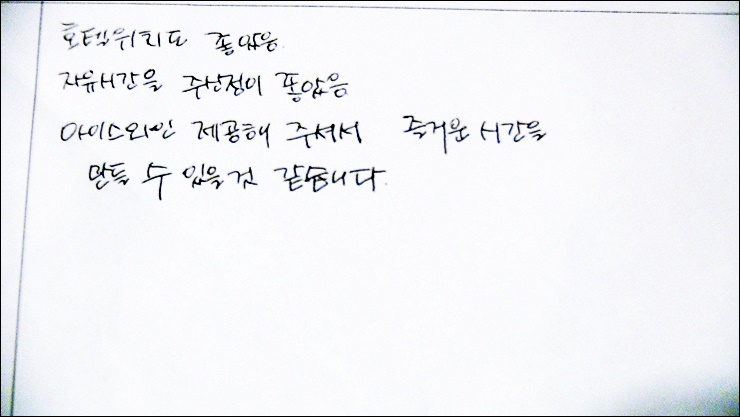 호텔위치도 좋았음.
자유시간을 주신점이 좋았음
아이스와인 제공해 주셔서 즐거운 시간을
만들 수 있을것 같습니다.